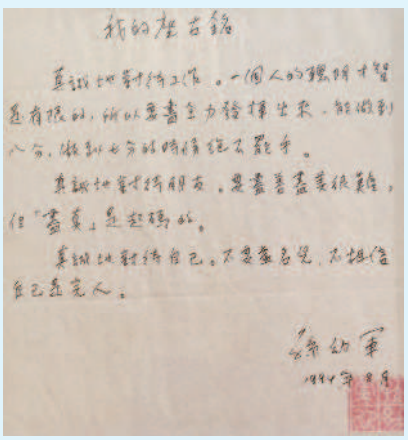 我的座右銘
真誠地對待工作。一個人的聰明才智
是有限的，所以要盡全力發揮出來，能做到
八分，做到七分的時候絕不罷手。
真誠地對待朋友。要盡善盡美很難，
但「盡真」是起碼的。
真誠地對待自己。不要蓋名兒，不相信
自己是完人。
孫幼軍
1994年8月